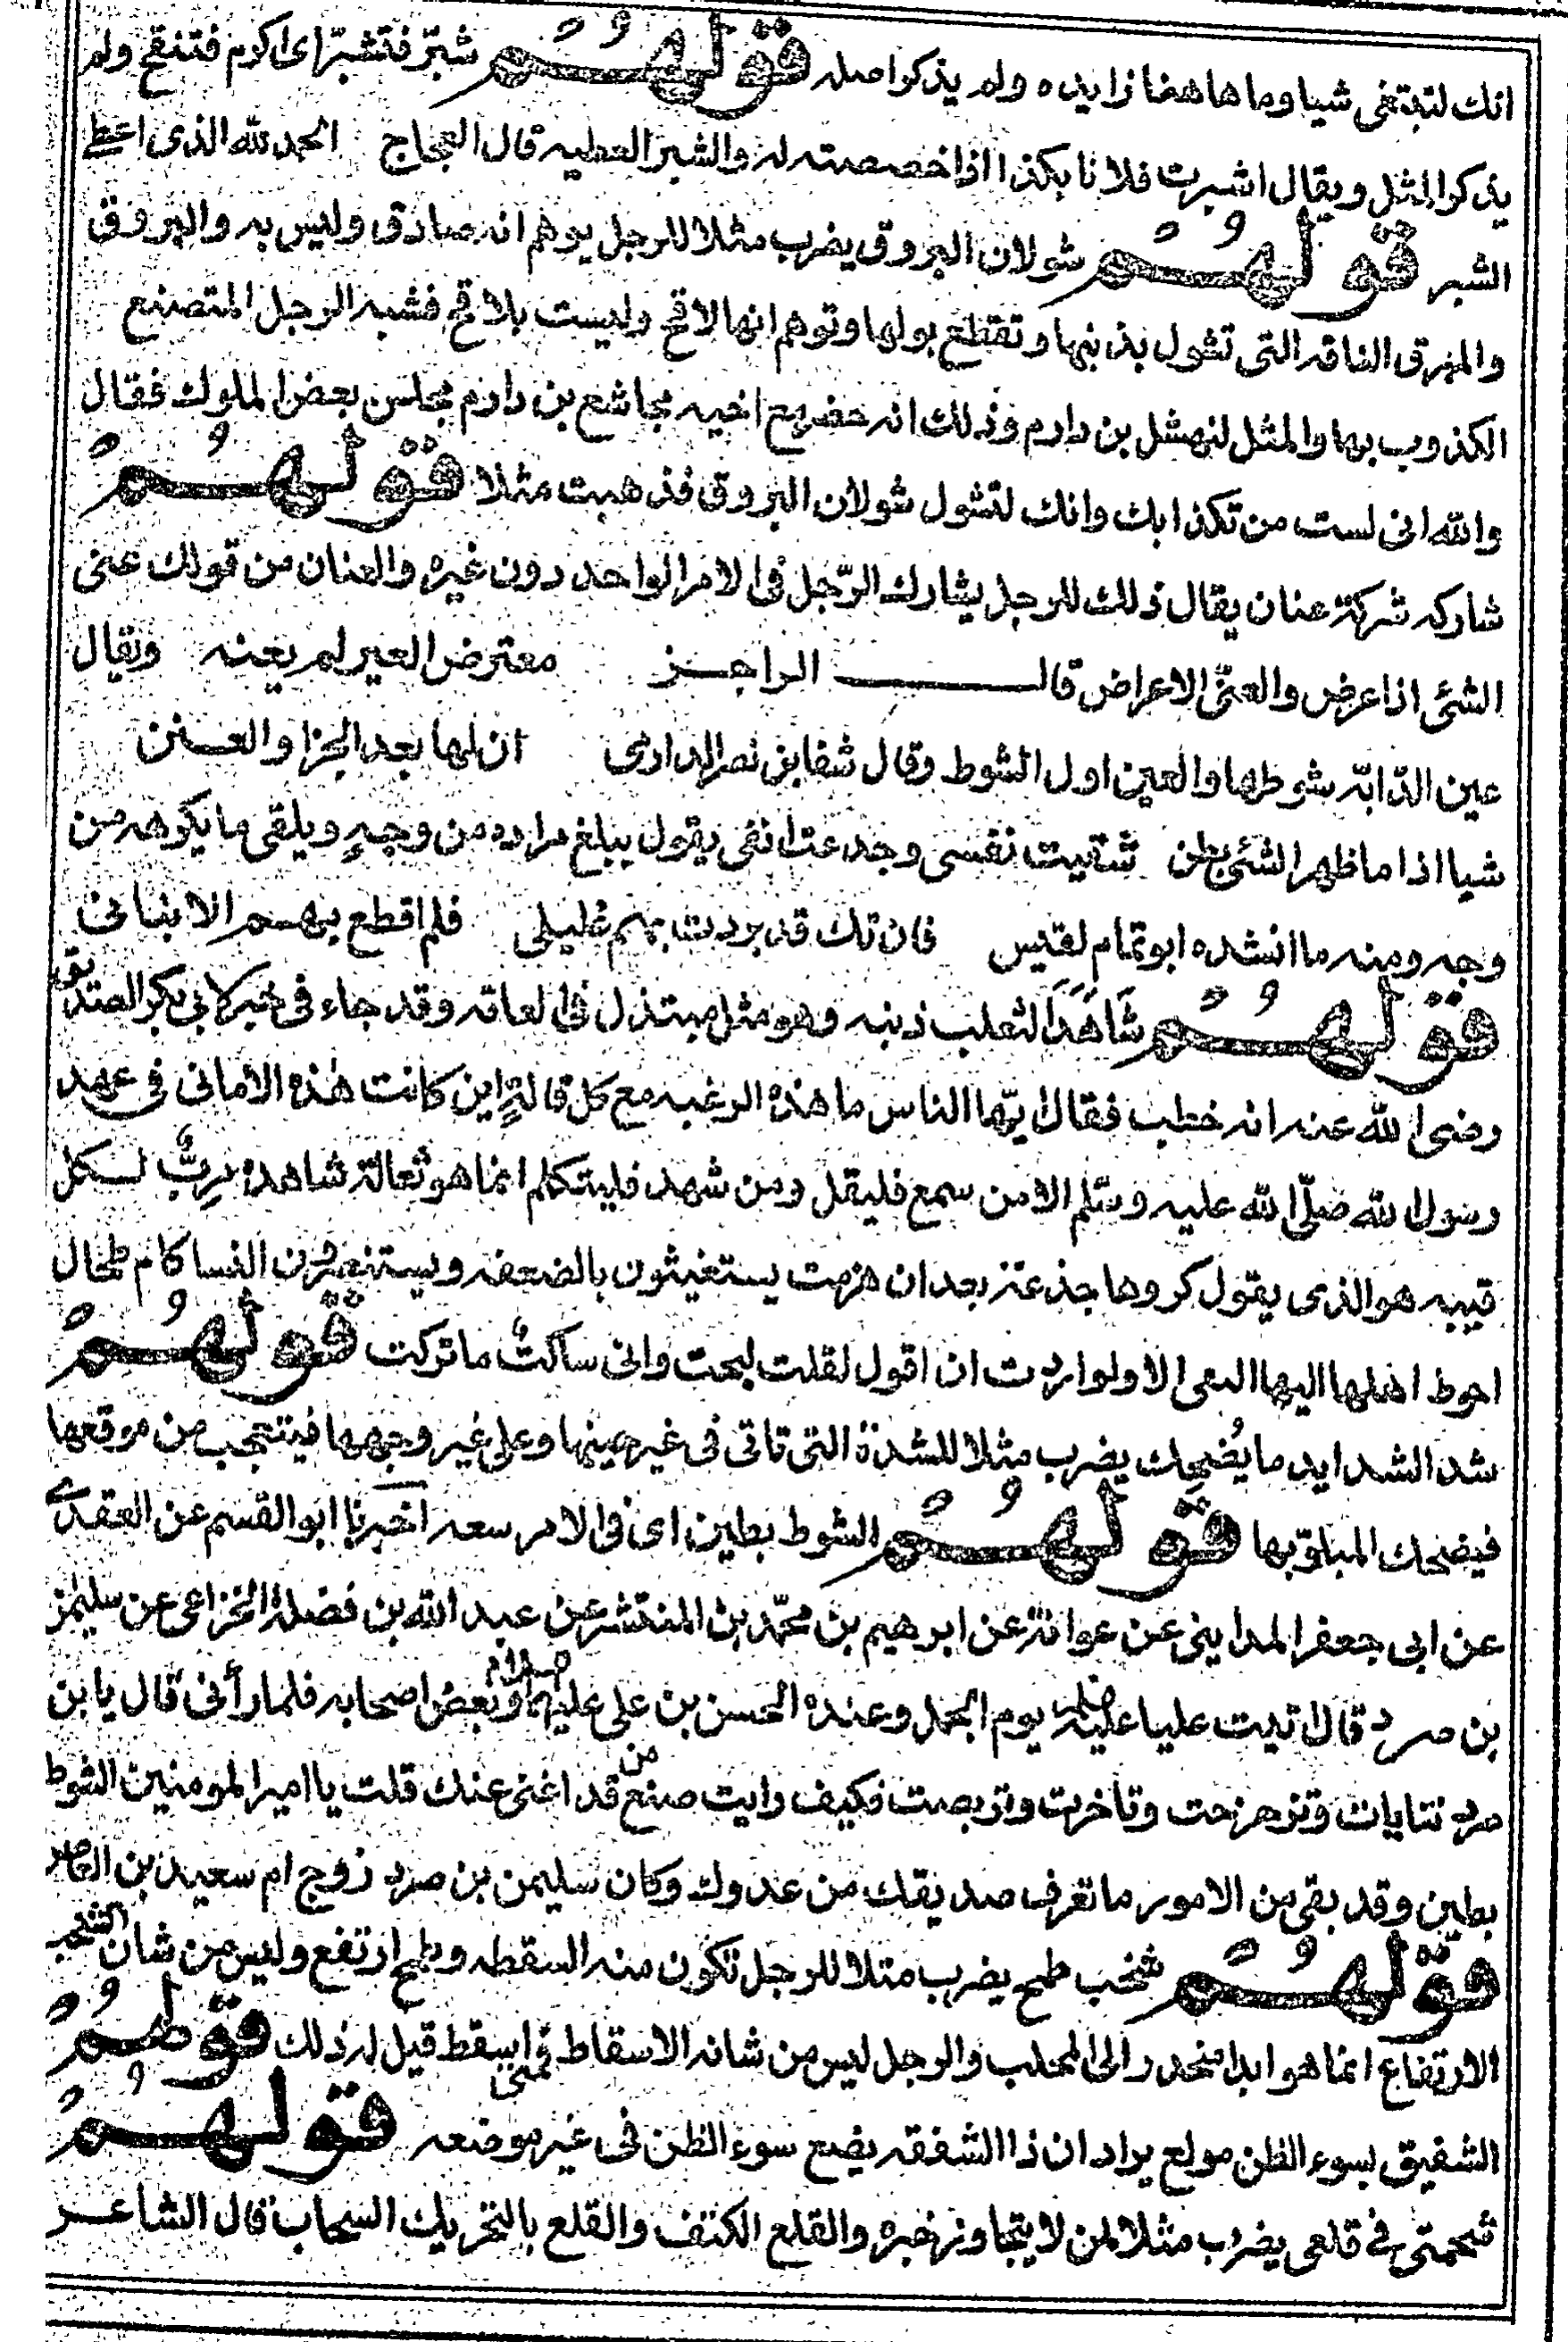 انك لتبتغى شيا وما هاهنا زايده ولم يذكر اصله قولهم شبّر فتشبّر اى اكرم فتنقح ولم
يذكر المثل ويقال اشبرت فلانا بكذا اذا خصصته له والشبر العطيه قال العجاج الحمد لله الذى اعطى
الشبر قولهم شولان البروق يضرب مثلا للرجل يوهم انه صادق وليس به والبروق
والمبرق الناقه التى تشول بذنبها وتقطع بولها وتوهم انها لاقح وليست بلاقح فشبه الرجل المتصنع
الكذوب بها والمثل لنهشل بن دارم وذلك انه حضر مع اخيه مجاشع بن دارم مجلس بعض الملوك فقال
والله انى لست من تكذابك وانك لتشول شولان البروق فذهبت مثلا قولهم
شاركه شركة عنان يقال ذلك للرجل يشارك الرّجل فى الامر الواحد دون غيره والعنان من قولك عنى
الشئ اذا عرض والعنّى الاعراض قال الراجز معترض العير لم يعنه ويقال
عين الدّابّه شوطها والعين اول الشوط وقال شفابن نصر الدارمى ان لها بعد الجزا والعسنن
شيا اذا ما ظهر الشئ بطن شقيت نفسى وجدعت انفى يقول يبلغ مراده من وجهٍ ويلقى ما يكرهه من
وجه ومنه ما انشده ابو تمام لقيس فان تك قد بردت بهم غليلى فلم اقطع بهم الا بنانى
قولهم شَاهَدَا لثعلب ذنبه وهو مثل مبتذل فى العاقه وقد جاء فى خبر لابى بكر الصديق
رضى الله عنه انه خطب فقال ايّها الناس ما هذه الرغبه مع كل قالةٍ اين كانت هذه الامانى فى عهد
رسول الله صلّى الله عليه وسّلم الا من سمع فليقل ومن شهد فليتكلم انما هو ثعالة شاهده مربٌّ لكل
فيبه هو الذى يقول كروها جذعة بعد ان هزمت يستغيثون بالضعفه ويستنصرون النسا كام طحال
احوط اهلها اليها البغى الا ولو اردت ان اقول لقلت لبحت وانى ساكتٌ ما تركت قولهم
شد الشدايد ما يُضحِك يضرب مثلا للشدة التى تاتى فى غير حينها وعلى غير وجهها فيتعجب من موقعها
فيضحك المبلوّ بها قولهم الشوط بطين اى فى الامر سعه اخبرنا ابو القسم عن العقدى
عن ابى جعفر المداينى عن عوانة عن ابرهيم بن محمّد بن المنتشر عن عبد الله بن فضلة الخزاعى عن سليمن
بن صرد قال اتيت عليا عليه يوم الجمل وعنده الحسن بن على عليهما وبعض اصحابه فلما رأنى قال يا بن
صرد نتايات وتزهزحت وتاخرت وتربصت فكيف رايت صنع من قد اغنى عنك قلت يا امير المومنين الشوط
بطين وقد بقى من الامور ما تعرف صديقك من عدوك وكان سليمن بن صرد زوج ام سعيد بن العاص
قولهم شخب طمح يضرب مثلا للرجل تكون منه السقطه وطمح ارتفع وليس من شان الشخب
الارتفاع انما هو ابدا منحدر الى المحلب والرجل ليس من شانه الاسقاط فمتى اسقط قيل له ذلك قولهم
الشفيق بسوء الظن مولع يراد ان ذا الشفقه يضع سوء الظن فى غير موضعه قولهم
شحمتى فى قلعى يضرب مثلا لمن لا يتجاوز خيره والقلع الكنف والقلع بالتحريك السحاب قال الشاعر